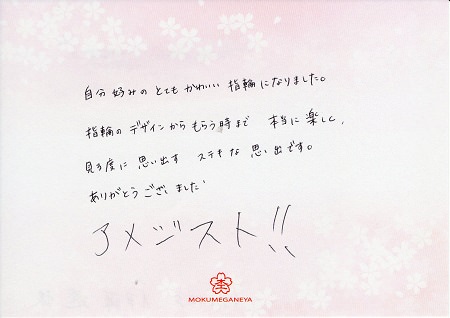 自分好みの とても かわいい 指輪になりました。
指輪の デザインから もらう時まで 本当に 楽しく、
見る度に 思い出す ステキな 思い出です。
ありがとうございました
アメジスト!!
杢
MOKUMEGANEYA